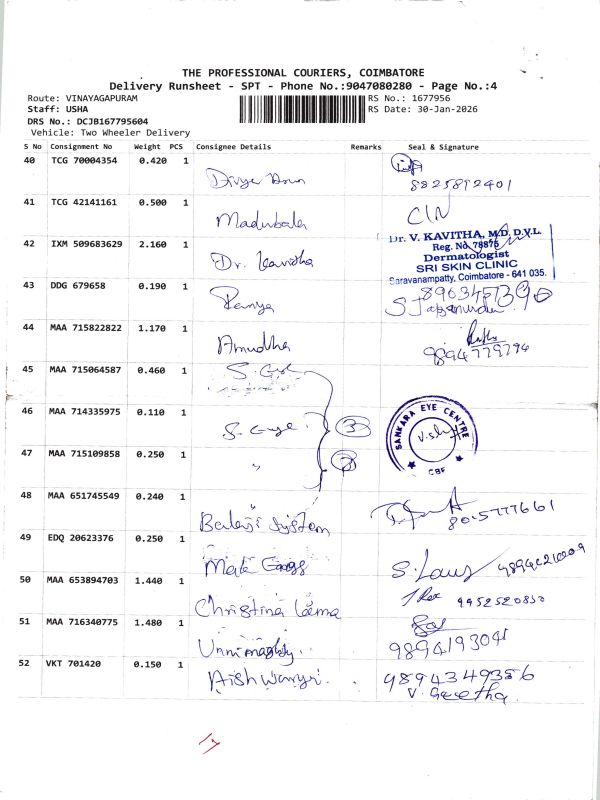 THE PROFESSIONAL COURIERS, COIMBATORE
Delivery Runsheet - SPT - Phone No.:9047080280 - Page No.:4
Route: VINAYAGAPURAM
RS No.: 1677956
Staff: USHA
RS Date: 30-Jan-2026
DRS No.: DCJB167795604
Vehicle: Two Wheeler Delivery
S No Consignment No Weight PCS Consignee Details Remarks Seal & Signature
40 TCG 70004354 0.420 1
Divya
8825892401
41 TCG 42141161 0.500 1
Madubala
C/N
42 IXM 509683629 2.160 1
Dr. Kavitha
Dr. V. KAVITHA, M.D. D.V.L.
Reg. No. 78875
Dermatologist
SRI SKIN CLINIC
Saravanampatty, Coimbatore - 641 035.
43 DDG 679658 0.190 1
Ramya
44 MAA 715822822 1.170 1
Amudha
9894779794
45 MAA 715064587 0.460 1
46 MAA 714335975 0.110 1
S.
3
SANKARA EYE CENTRE
CBF
47 MAA 715109858 0.250 1
"
48 MAA 651745549 0.240 1
Balaji System
8015777661
49 EDQ 20623376 0.250 1
50 MAA 653894703 1.440 1
Christina
9952520850
51 MAA 716340775 1.480 1
9894193041
52 VKT 701420 0.150 1
Aishwarya
9894349356
V. Geetha